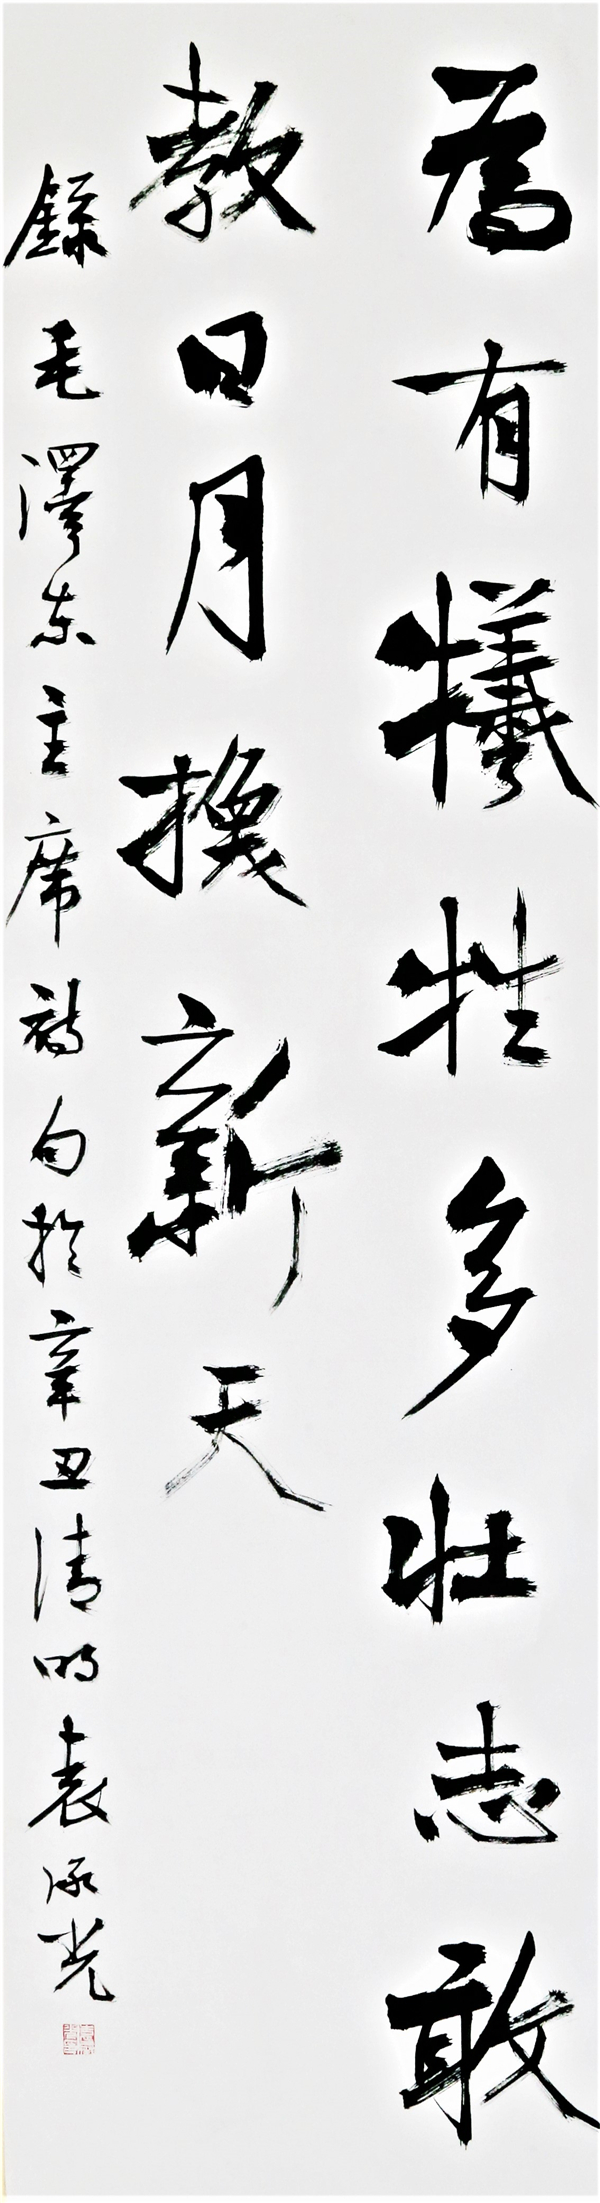 為有犧牲多壯志敢
教日月換新天
錄毛澤东主席诗句於辛丑清明袁承光